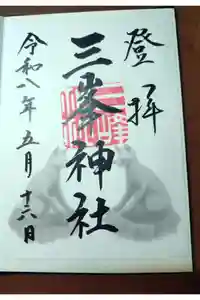 登拝
三峯神社
令和八年五月十六日